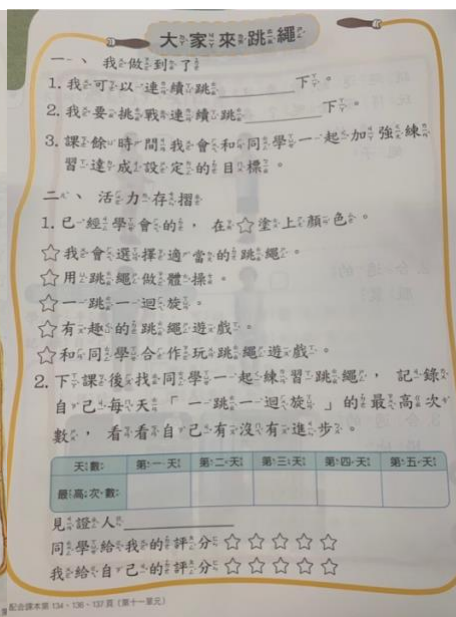 大家來跳繩
一、我做到了
1. 我可以連續跳________下。
2. 我要挑戰連續跳________下。
3. 課餘時間我會和同學一起加強練
習達成設定的目標。
二、活力存摺
1. 已經學會的，在☆塗上顏色。
☆我會選擇適當的跳繩。
☆用跳繩做體操。
☆一跳一迴旋。
☆有趣的跳繩遊戲。
☆和同學合作玩跳繩遊戲。
2. 下課後找同學一起練習跳繩，記錄
自己每天「一跳一迴旋」的最高次
數，看看自己有沒有進步。
天數 第一天 第二天 第三天 第四天 第五天
最高次數
見證人________
同學給我的評分☆☆☆☆☆
我給自己的評分☆☆☆☆☆
配合課本第 134、136、137 頁（第十一單元）